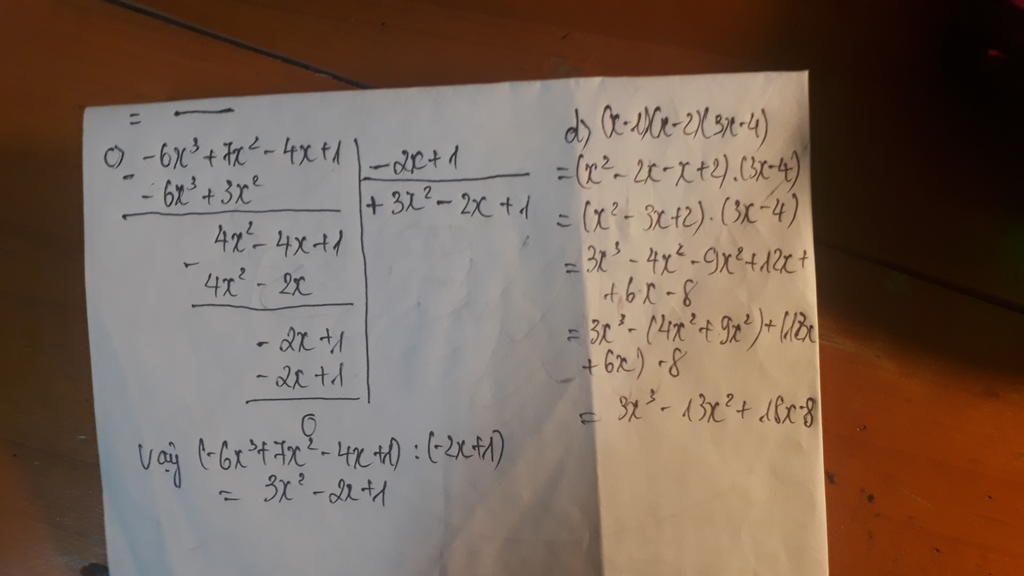 = —
c) -6x³ + 7x² - 4x + 1 | -2x + 1
- -6x³ + 3x² | + 3x² - 2x + 1
4x² - 4x + 1
- 4x² - 2x
- 2x + 1
- 2x + 1
0
Vậy (-6x³ + 7x² - 4x + 1) : (-2x + 1)
= 3x² - 2x + 1
d) (x - 1)(x - 2)(3x - 4)
= (x² - 2x - x + 2) . (3x - 4)
= (x² - 3x + 2) . (3x - 4)
= 3x³ - 4x² - 9x² + 12x +
+ 6x - 8
= 3x³ - (4x² + 9x²) + (12x
+ 6x) - 8
= 3x³ - 13x² + 18x - 8